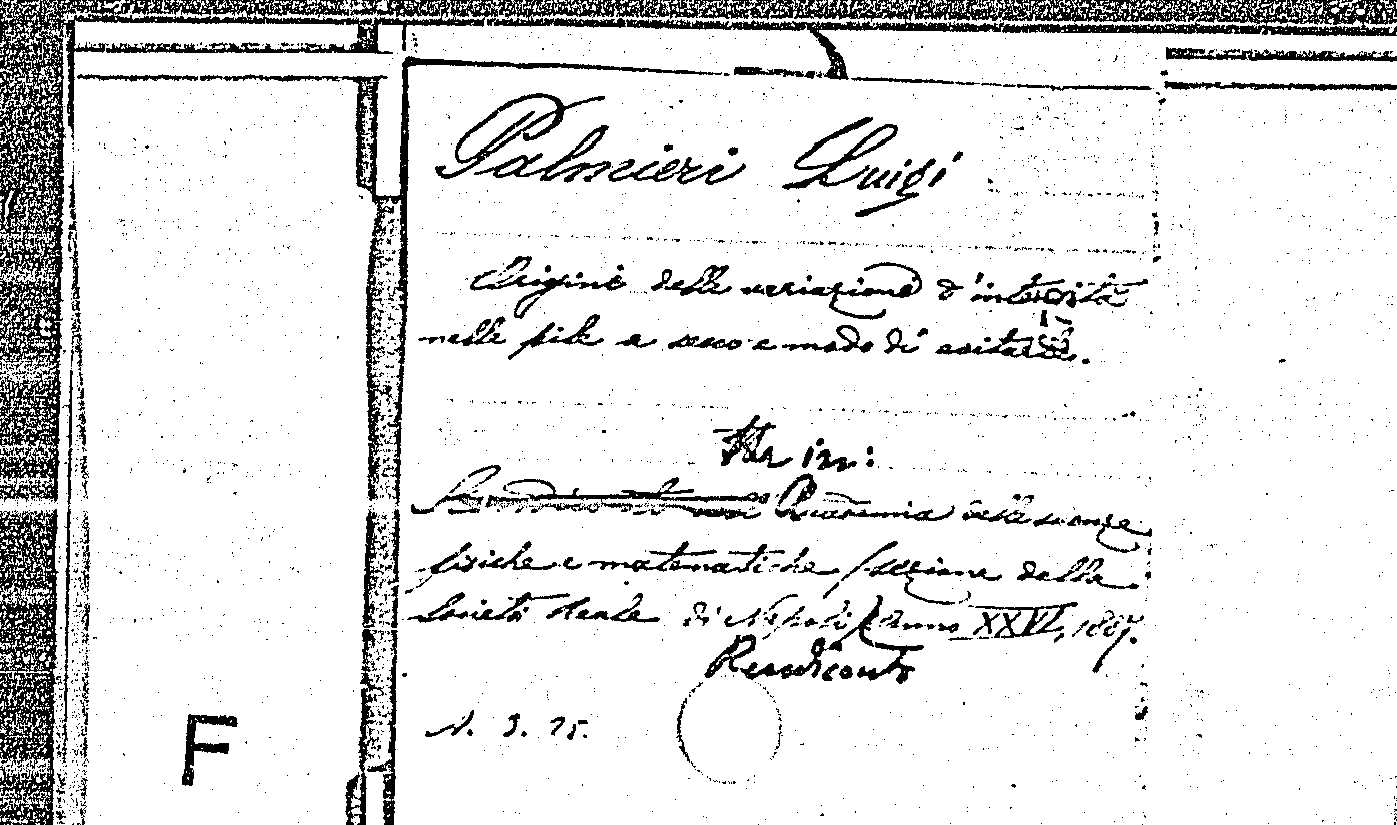 Palmieri Luigi
Origine delle variazione d'intensità
nelle pile a secco e modo di evitarle.
Sta in:
Rendiconto Accademia delle scienze
fisiche e matematiche (sezione della
Società Reale di Napoli) anno XXVI, 1887.
Rendiconto
N. 3. 25.
F